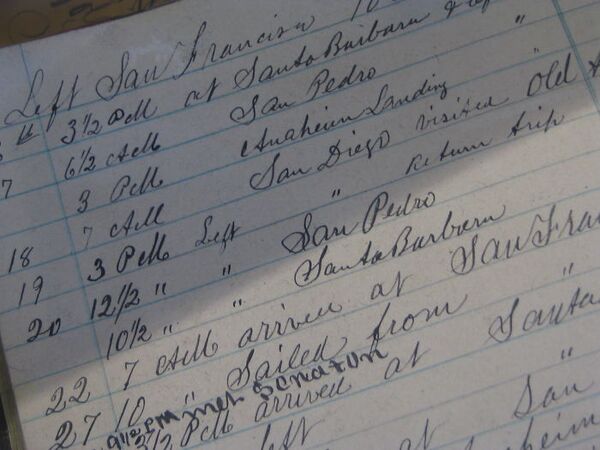 Left San Francisco 10
3 1/2 PM at Santa Barbara
7 6 1/2 AM San Pedro "
3 PM Anaheim Landing "
18 7 AM San Diego visited Old
19 3 PM Left " Return trip
20 12 1/2 " " San Pedro
10 1/2 " " Santa Barbara
22 7 AM arrived at San Fran
27 10 " Sailed from "
9 1/2 PM met
3 1/2 PM arrived at Santa
left "
at San